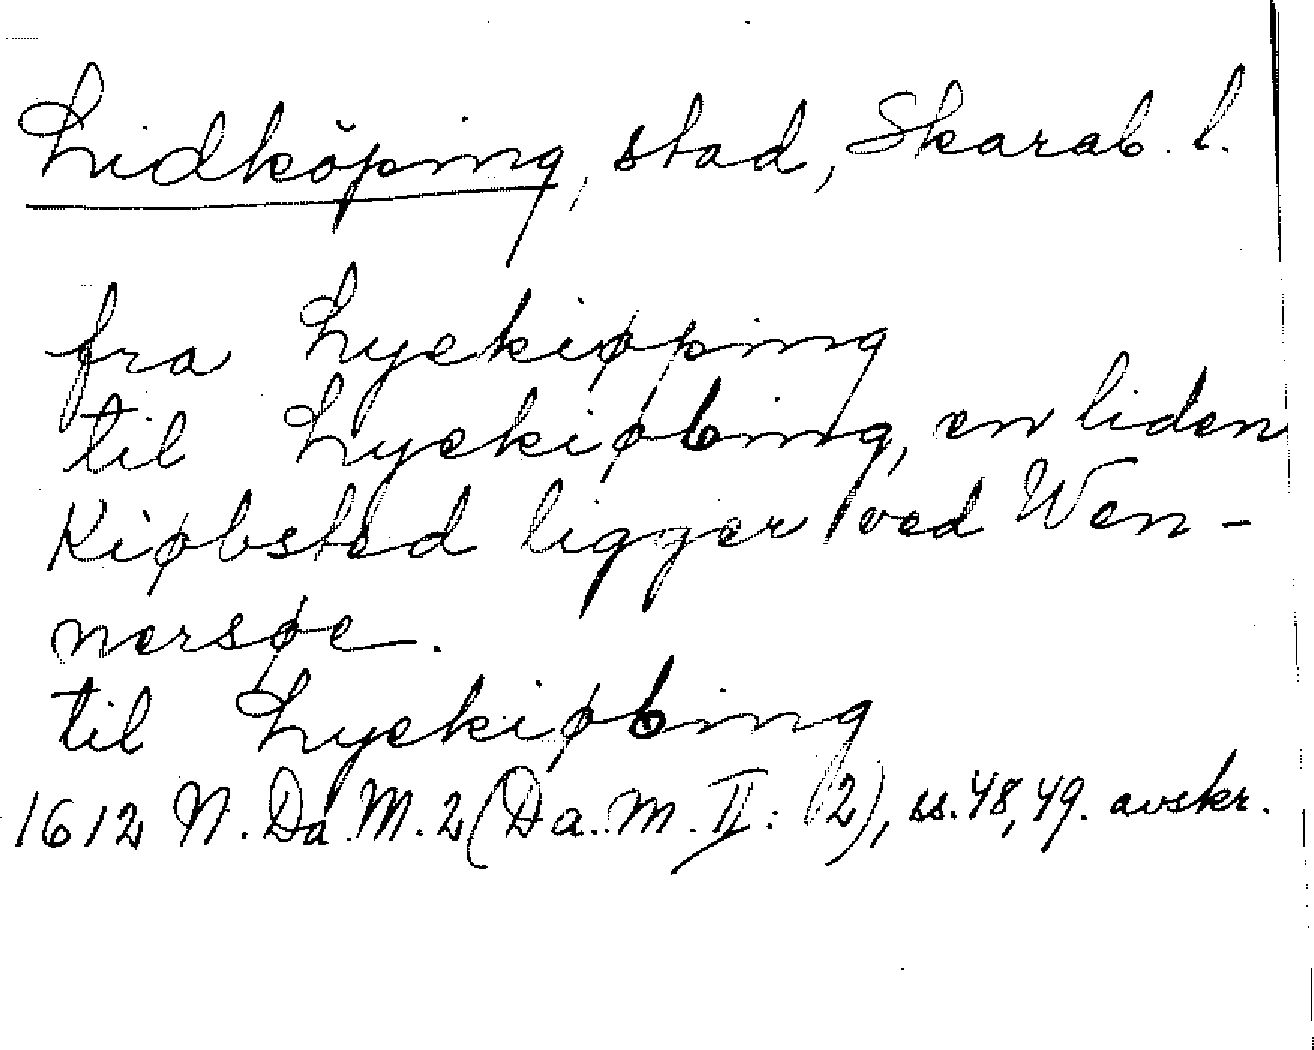 Lidköping, stad, Skarab. l.
fra Lyekiøping
til Lyekiøbing, en liden
Kiøbsted ligger ved Wen-
nersøe.
til Lyekiøbing
1612 N. Da. M. 2 (Da. M. II: (2), ss. 48, 49. avskr.